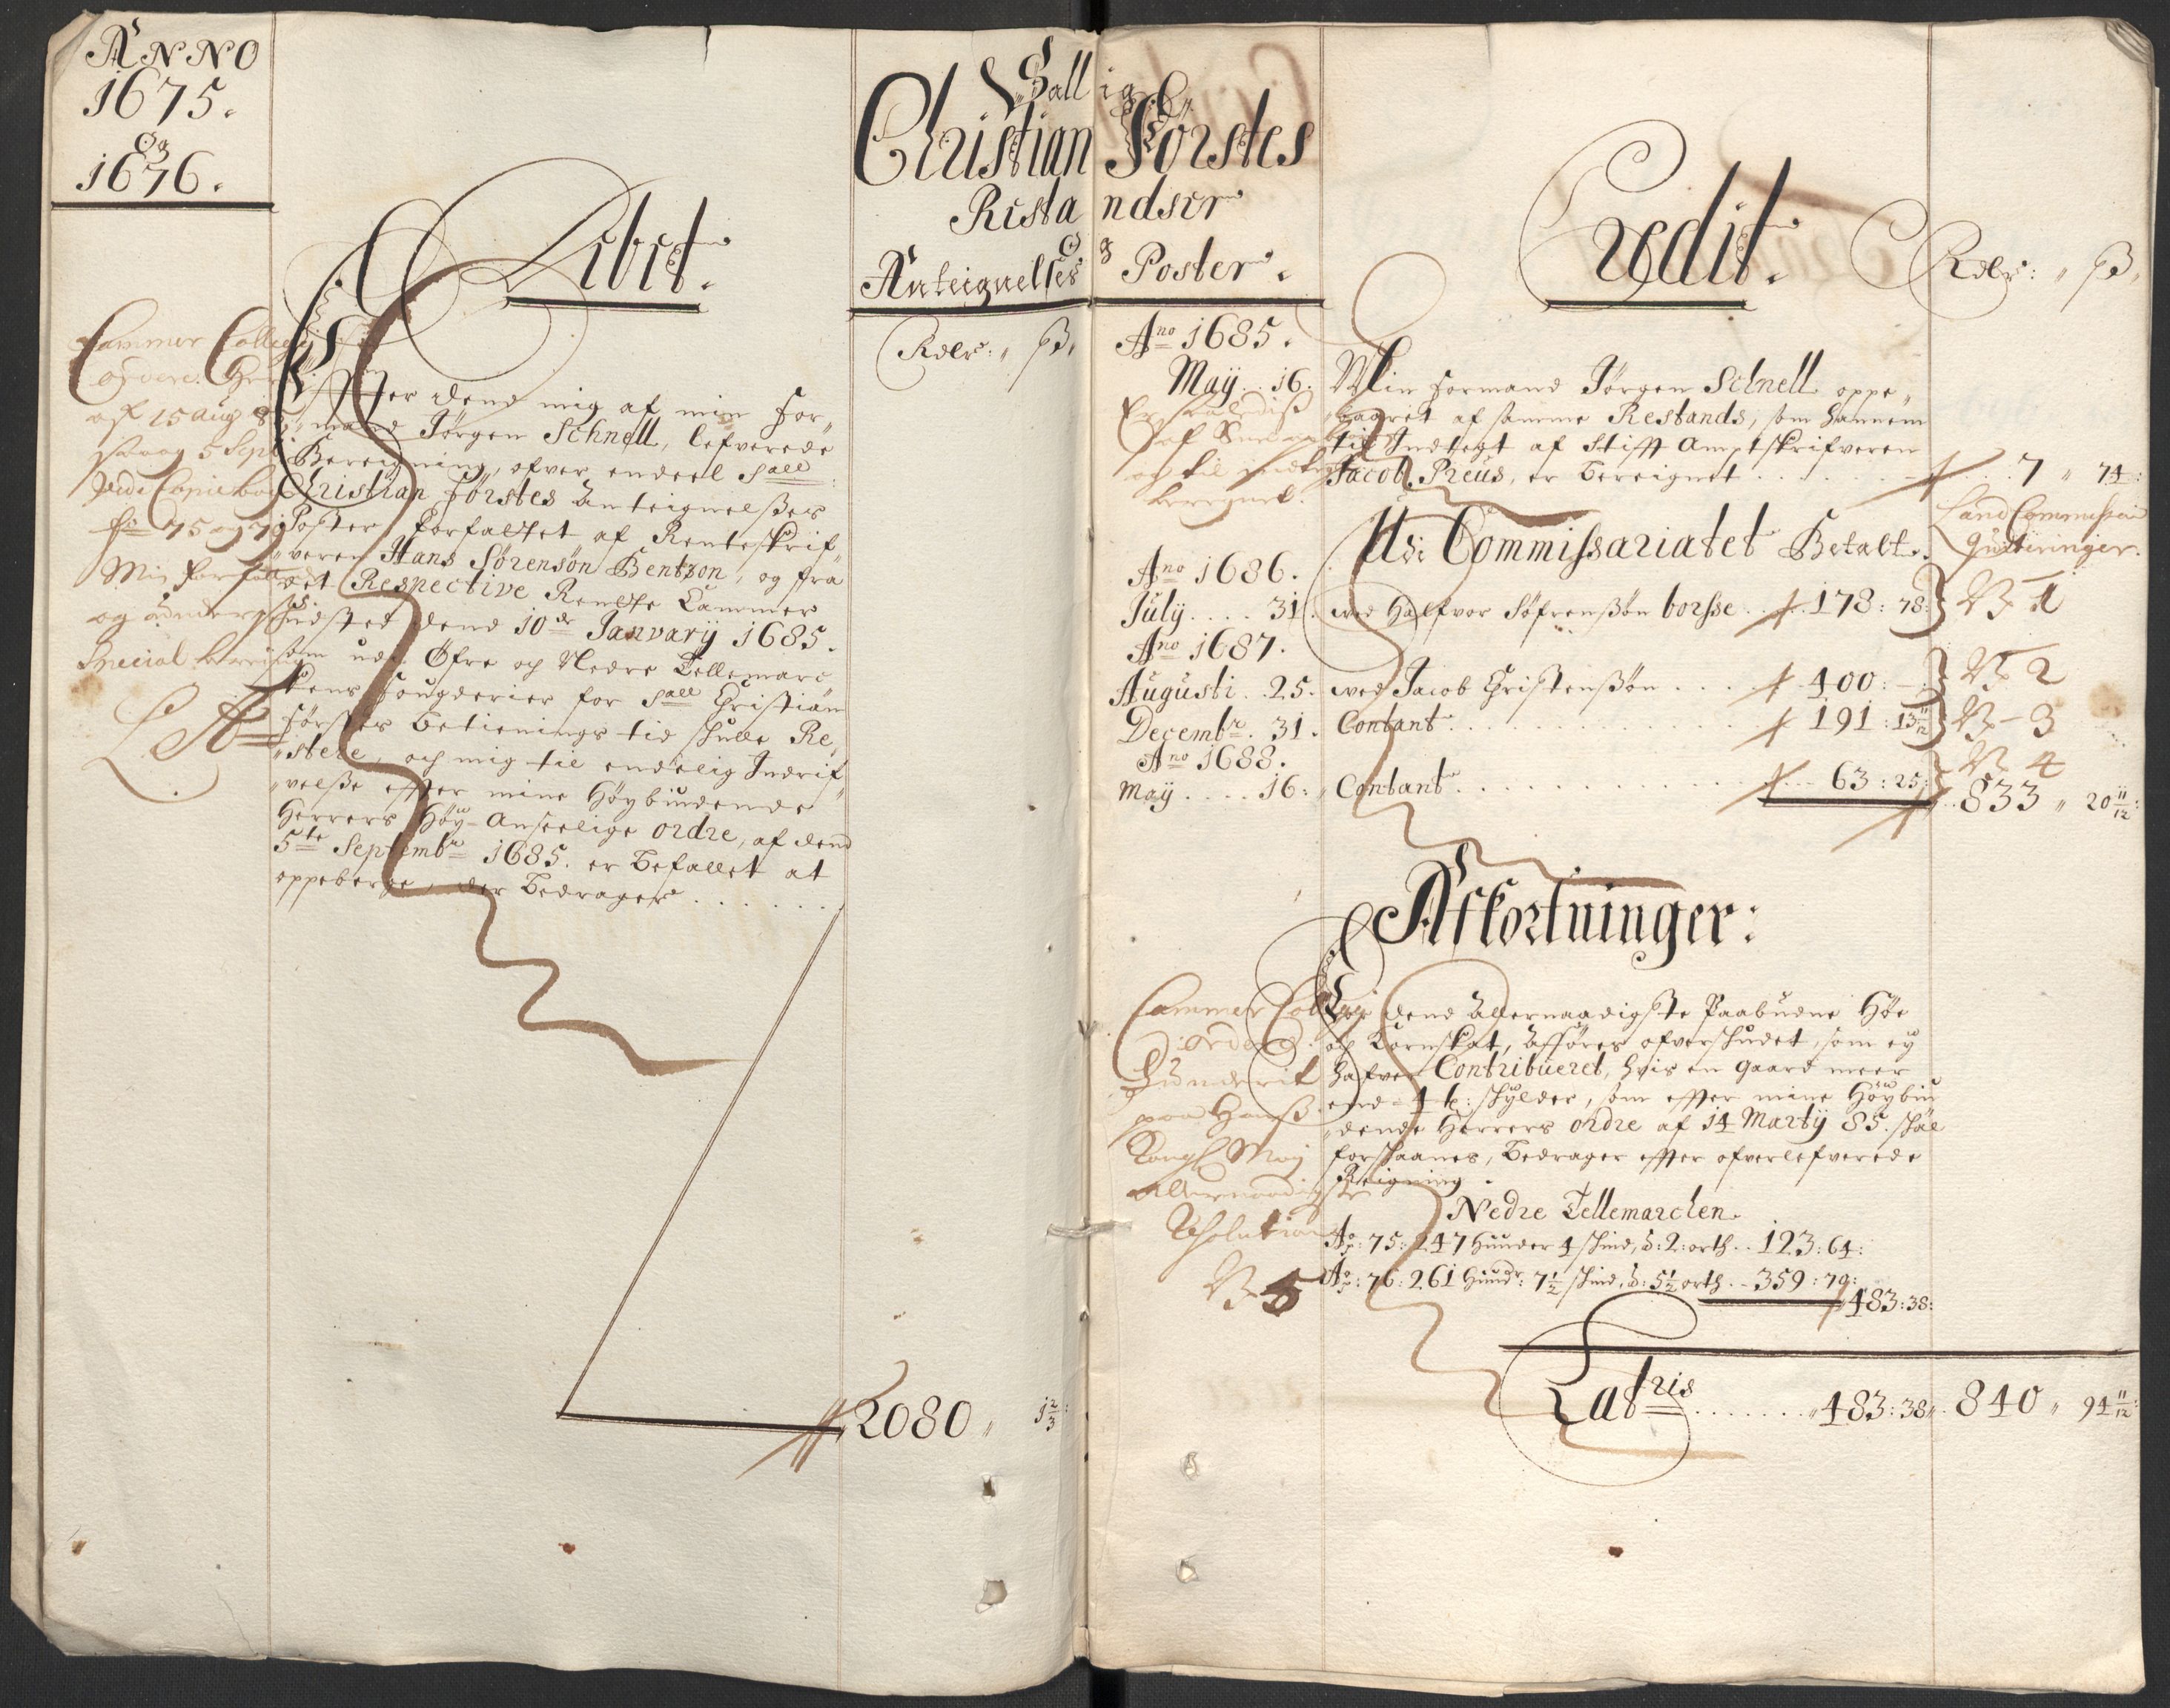 ANNO
1675.
og
1676.
Sallig
Christian Förstes
Restandser
og
Anteignelses Poster.
Debit.
Rdlr: ß.
Cammer Collegii
af 15 Aug 85
samt 5 Sept
Vide Copie bog
fo 75 og 79
Effter dend mig af min For„
„mand Jörgen Schnell, lefverede
Bereigning, ofver endeel Sall:
Christian Förstes Anteignelßes
Poster forfattet af Renteskrif„
„veren Hans Sörensön Bentzon, og fra
det Respective Rendte Cammer
udsted dend 10de Januarÿ 1685.
som udi Öfre och Nedre Tellemarc„
kens Fougderier for Sall Christian
Förstes betienings tid skulle Re„
„stere, och mig til endelig Indrif„
„velße effter mine Höybiudende
Herrers Höy-Anseelige ordre, af dend
5te Septembr 1685. er befallet at
oppeberge, der bedrager . . . . . .
2080 „ 1 2/3:
Credit.
Rdlr: „ ß.
Ano 1685.
Maÿ . . 16. Min formand Jörgen Schnell oppe„
„baaret af samme Restands, som hannem
til Indtegt af Stifft Ampt skrifveren
Jacob Preus, er bereignet . . . . . . 7 „ 74:
Udi Commissariatet Betalt.
Land Commissari
Quiteringer.
Ano 1686.
Julÿ . . . . 31. med Halfvor Söfrenßön borsse . . 178: 78: N 1
Ano 1687.
Augusti . . 25. med Jacob Christenßön . . . 400: – N 2
Decembr. 31. Contant . . . . . . 191: 13 11/12 N 3
Ano 1688.
N 4
Maÿ . . . . 16: Contant . . . . . . 63: 25: 833 „ 20 11/12:
Afkortninger:
Cammer Collegii
ordre
funderit
paa Hans
Kongl Maÿ
allernaadigste
Resolution
N 5
For dend allernaadigste Paabudne Höe
och Kornskat, afföres ofverskudet, som eÿ
hafver Contribueret, hvis en gaard meer
end 4 t: skylder, som effter mine Höybiu
„dende Herrers ordre af 14 Martÿ 85. skal
forskaanes, bedrager effter ofverlefverede
Reigning.
Nedre Tellemarchen
Ao: 75: 247 Hunder 4 skind, à: 2: orth . . 123: 64:
Ao: 76: 261 Hundr: 7 1/2 skind, à: 5 1/2 orth . . 359: 70:
483: 38:
Latris . . . . . . . „483: 38„ 840 „ 94 11/12: